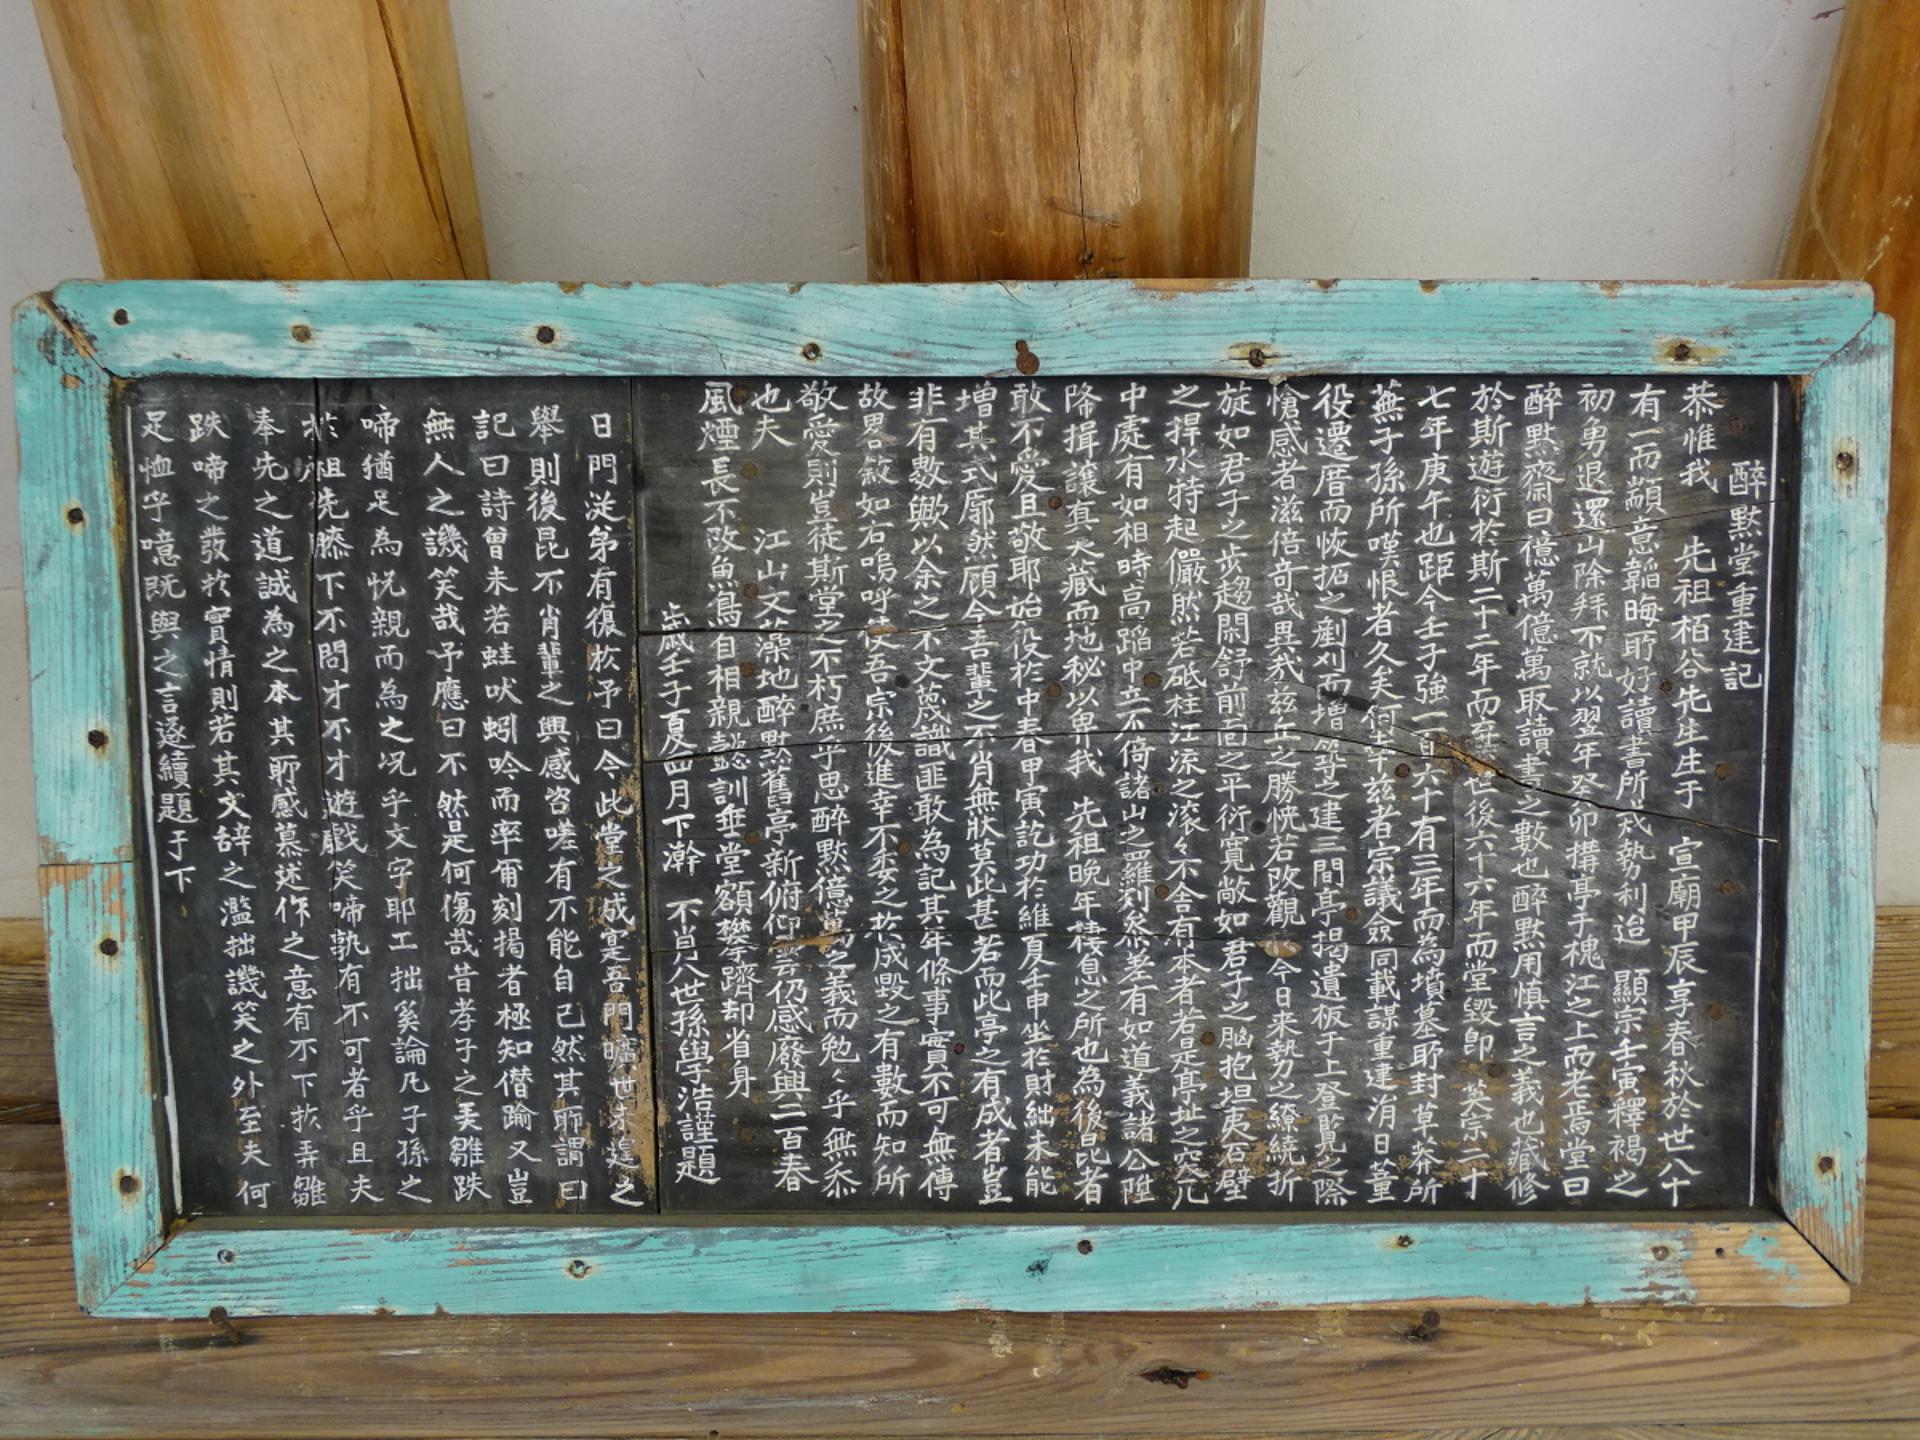 醉默堂重建記
恭惟我 先祖栢谷先生生于 宣廟甲辰享春秋於世八十
有一而顓意韜晦耶好讀書所戎勢利迨 顯宗壬寅釋褐之
初勇退還山除拜不就以翌年癸卯搆亭于槐江之上而老焉堂曰
醉默齋曰億萬億萬取讀書之數也醉默用慎言之義也藏修
於斯遊衍於斯二十二年而弃世後六十六年而堂毀卽 英宗二十
七年庚午也距今壬子強一百六十有三年而為墳墓耶封草莽所
蕪子孫所嘆恨者久矣何幸茲者宗議僉同載謀重建涓日董
役遷厝而恢拓之剷刈而增築之建三間亭揭遺板于上登覽之際
愴感者滋倍奇哉異哉茲丘之勝恍若改觀 今日来勢力之繚繞折
旋如君子之步趨閑舒前面之平衍寬敞如君子之胸抱坦夷石壁
之捍水特起儼然若砥柱江流之滚々不舍有本者若是亭址之突兀
中處有如相時高蹈中立不倚諸山之羅列叅差有如道義諸公陞
降揖讓真天藏而地秘以畀我 先祖晩年棲息之所也為後昆者
敢不愛且敬耶始役於中春甲寅訖功於維夏壬申坐於財絀未能
增其式廓然顧今吾輩之不肖無狀莫此甚若而此亭之有成者豈
非有數歟以余之不文蔑識匪敢為記其年條事實不可無傳
故畧敘如右嗚呼使吾宗後進幸不委之於成毀之有數而知所
敬愛則豈徒斯堂之不朽庶乎思醉默億萬之義而勉々乎無忝
也夫 江山文藻地醉默舊亭新俯仰雲仍感廢興二百春
風煙長不改魚鳥自相親懿訓垂堂額攀躋却省身
歲壬子夏四月下澣 不肖八世孫學浩謹題
日門從弟有復於予曰今此堂之成寔吾門曠世未遑之
舉則後昆不肖輩之興感咨嗟有不能自已然其耶謂曰
記曰詩曾未若蛙吠蚓吟而率甭刻揭者極知僭踰又豈
無人之譏笑哉予應曰不然是何傷哉昔孝子之美雛跌
啼猶足為悅親而為之况乎文字耶工拙奚論凡子孫之
於祖先膝下不問才不才遊戲笑啼孰有不可者乎且夫
奉先之道誠為之本其耶感慕述作之意有不下於弄雛
跌啼之發於實情則若其文辞之濫拙譏笑之外至夫何
足恤乎噫既與之言遂續題于下